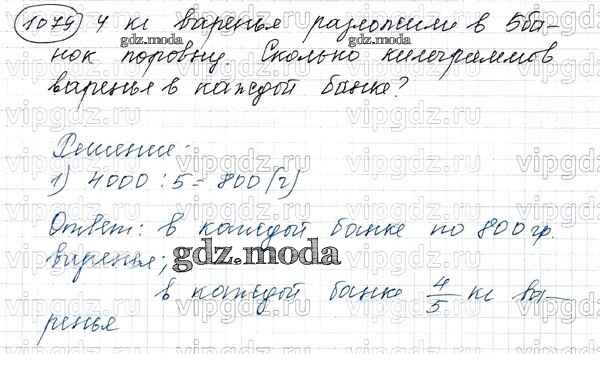 1079 4 кг варенья разложили в 5 ба-
нок поровну. Сколько килограммов
варенья в каждой банке?
Решение:
1) 4000 : 5 = 800 (г)
Ответ: в каждой банке по 800 гр.
варенья;
в каждой банке 4/5 кг ва-
ренья
gdz.moda
gdz.moda
gdz.moda
vipgdz.ru